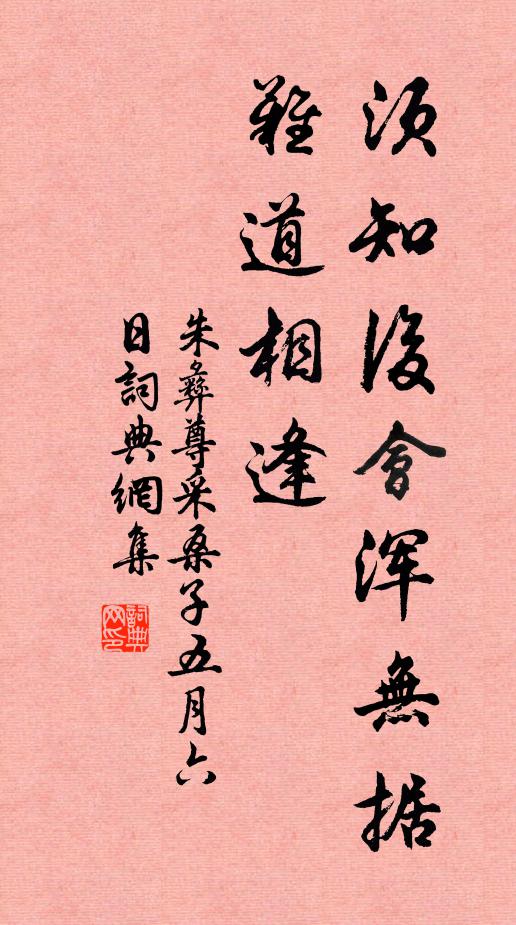 须知後會渾無据
難道相逢
朱彝尊采桑子五月六
日詞典網集
詞典網印